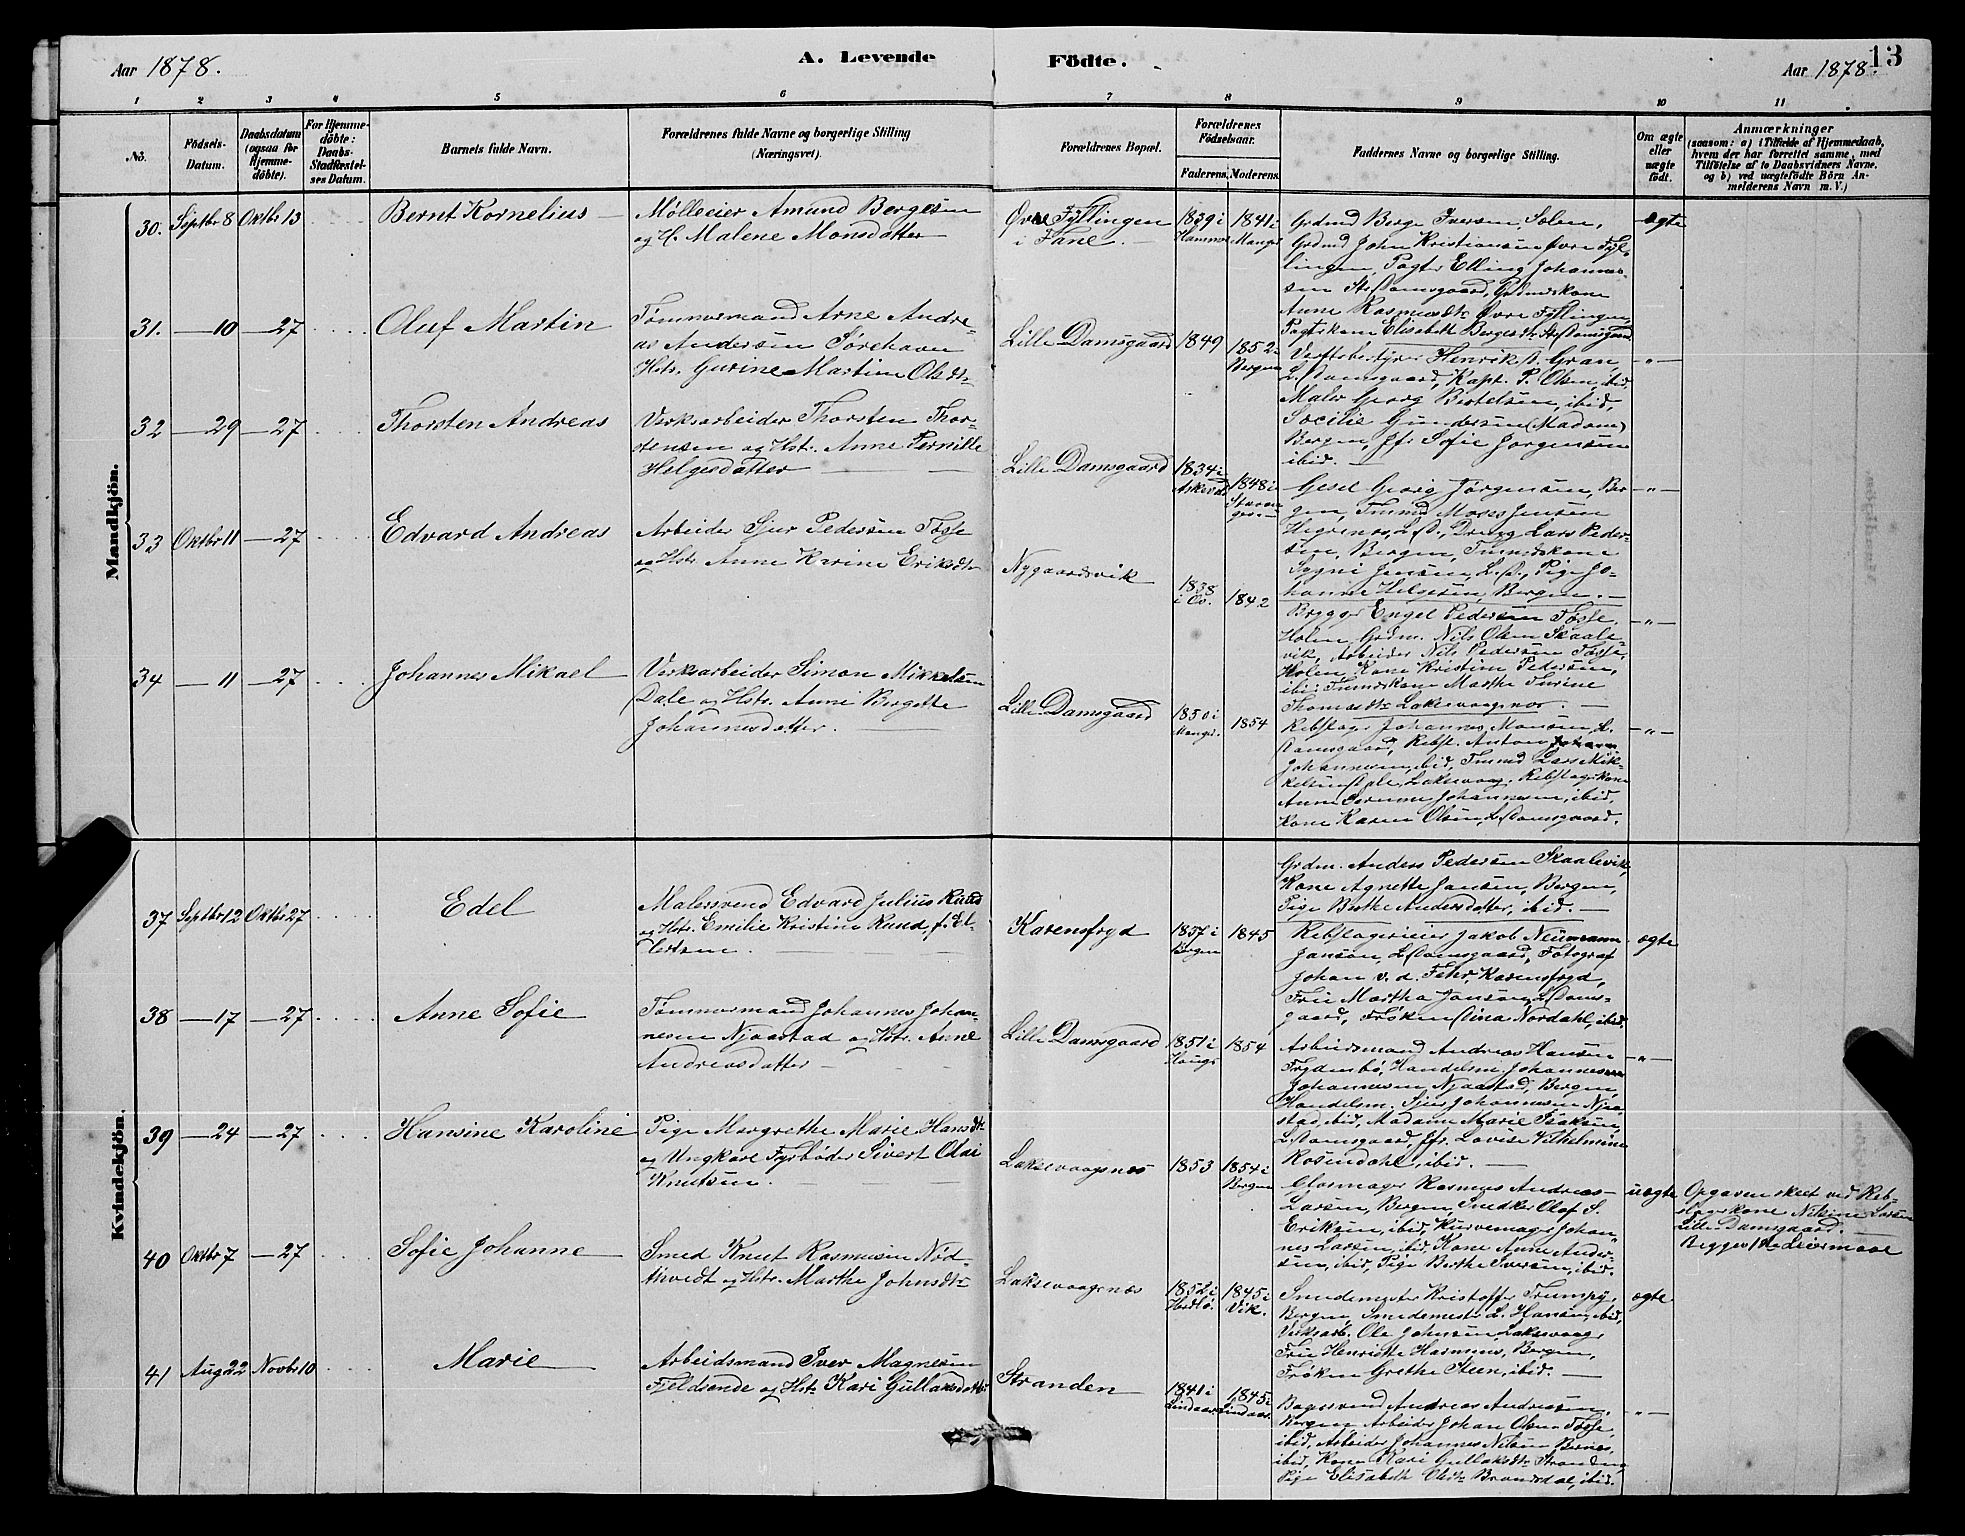 Aar 1878.
A. Levende
Födte.
13
Aar 1878.
1 2 3 4 5 6 7 8 9 10 11
No.
Födsels-
Datum.
Daabsdatum
(ogsaa for
Hjemme-
döbte).
For Hjemme-
döbte:
Daabs-
Stadfæstel-
ses Datum.
Barnets fulde Navn.
Forældrenes fulde Navne og borgerlige Stilling
(Næringsvei).
Forældrenes Bopæl.
Forældrenes
Födselsaar.
Faderens. Moderens.
Faddernes Navne og borgerlige Stilling.
Om ægte
eller
uægte
födt.
Anmærkninger
(saasom: a) i Tilfælde af Hjemmedaab,
hvem der har forrettet samme, med
Tilföielse af to Daabsvidners Navne,
og b) ved uægtefödte Börn An-
melderens Navn m. V.)
Mandkjön.
30. Septbr 8 Oktbr 13
Bernt Kornelius
Mølleeier Amund Bergesen
og H. Malene Monsdatter
Øvre Fyllingen
i Fane.
1839 i
1841 i
Manger
Grdmd Berge Iversen, Sælen,
Grdmd John Kristiansen Øvre Fyl-
lingen, Pagter Elling Johannes-
sen St. Damsgaard, Grdmdskone
Anne Rasmusdtr Øvre Fyllingen,
Pagterkone Elisabeth Bergesdtr St. Damsgaard
ægte
31. — 10 — 27
Oluf Martin
Tømmermand Arne Andre-
as Andersen Sørehavn
Hstr. Gurine Martine Olsdtr
Lille Damsgaard
1849
1852 i
Bergen
Værftsbestyrer Henrik D. Gran,
L. Damsgaard, Kapt. P. Olsen, ibid,
Maler Georg Bertelsen, ibid,
Sæcilie Gundersen (Madam)
Bergen, Jfr. Sofie Jørgensen
ibid.
— " —
32 — 29 — 27
Thorsten Andreas
Verksarbeider Thorsten Thor-
stensen og Hst. Anne Pernille
Helgesdatter
Lille Damsgaard
1834 i
1848 i
Stavan-
ger.
Gesel Georg Jørgensen, Ber-
gen, Tmmd Moses Jensen
L. D., Dreng Lars Peder-
sen, Bergen, Tmmdskone
Jensen, L. D., Pige Jo-
hanne Helgesen, Bergen.
— " —
33 Oktbr 11 — 27
Edvard Andreas
Arbeider Sjur Pedersen Fosse
og Hstr Anne Karine Eriksdtr
Nygaardsvik
1838
i Os.
1842
Brygger Engel Pedersen Fosse,
Holen, Grdm. Nils Olsen Skaale-
vik, Arbeider Nils Pedersen Fosse,
Holen, Kone Kristine Pedersen,
ibid, Tmmdskone Marthe Turine
Thomasdtr Laksevaagsnæs.
— " —
34 — 11 — 27
Johannes Mikael
Verksarbeider Simon Mikkelsen
Dale og Hstr. Anne Bergette
Johannesdatter.
Lille Damsgaard
1850 i
Manger.
1854
Rebslager Johannes Monsen L.
Damsgaard, Rebsl. Anton
Johannesen, ibid, Tmmd Lars Mik-
kelsen Dale, Laksevaag, Rebslagerkone
Anne Johannesen, ibid,
Kone Karen Olsen, L. Damsgaard.
— " —
Kvindekjön.
37 Septbr 12 Oktbr 27
Edel
Malersvend Edvard Julius Ruud
og Hstr. Emilie Kristine Ruud, f. El-
lertsen.
Karensfryd
1857 i
Bergen
1845
Grdm. Anders Pedersen Skaalevik,
Kone Agnette Jansen, Bergen,
Pige Berthe Andersdatter, ibid.
Rebslagerieier Jakob Neumann
Janson, L. Damsgaard, Fotograf
Johan v. d. Fehr, Karensfryd,
Frue Martha Janson L. Dams-
gaard, Frøken Dina Nordahl, ibid.
ægte
38 — 17 — 27
Anne Sofie
Tømmermand Johannes Johan-
nesen Njaastad og Hstr. Anne
Andreasdatter
Lille Damsgaard
1851 i
Haugs
1854
Arbeidsmand Andreas Hansen
Frydenbø, Handelsm. Johannes
Johannesen Njaastad, Bergen,
Handelsm. Sjur Johannesen Njaa-
stad, ibid, Madame Marie Isaksen,
L. Damsgaard, Jfr. Lovise Vilhelmine
Rosendahl, ibid.
— " —
39 — 24 — 27
Hansine Karoline
Pige Margrethe Marie Hansdtr
og Ungkarl Fyrbøder Sivert Olai
Knutsen.
Laksevaagsnæs
1853
1854 i
Bergen
Glasmager Rasmus Andreas
Larsen, Bergen, Snedker Olaf S.
Eriksen, ibid, Kurvemager Johan-
nes Larsen, ibid, Kone Anne Ander-
sen, ibid, Pige Berthe Iversen, ibid.
uægte
Opgaven skeet ved Reb-
slagerkone Nilsine Larsen
Lille Damsgaard.
Begges 1ste Leiermaal
40 Oktbr 7 — 27
Sofie Johanne
Smed Knut Rasmusen Nød-
tvedt og Hstr. Marthe Johnsdtr
Laksevaagsnæs
1852 i
Herdlø.
1845 i
Vik.
Smedemester Kristoffer Trumpy,
Bergen, Smedemester L. Hansen, ibid,
Verksarb. Ole Johnsen, Laksevaag,
Frue Henriette Harmens, Bergen,
Frøken Grethe Steen, ibid.
ægte
41 Aug 22 Novbr 10
Marie
Arbeidsmand Iver Magnesen
Fjeldsende og Hstr Kari Gullaksdatter
Stranden
1841 i
Lindaas.
1845 i
Lindaas.
Bagersvend Andreas Andreasen,
Bergen, Arbeider Johan Olsen Fosse,
ibid, Arbeider Johannes Nilsen Bernes,
ibid, Kone Kari Gullaksdtr Stranden,
Pige Elisabeth Olsdtr Brandsdal, ibid.
— " —